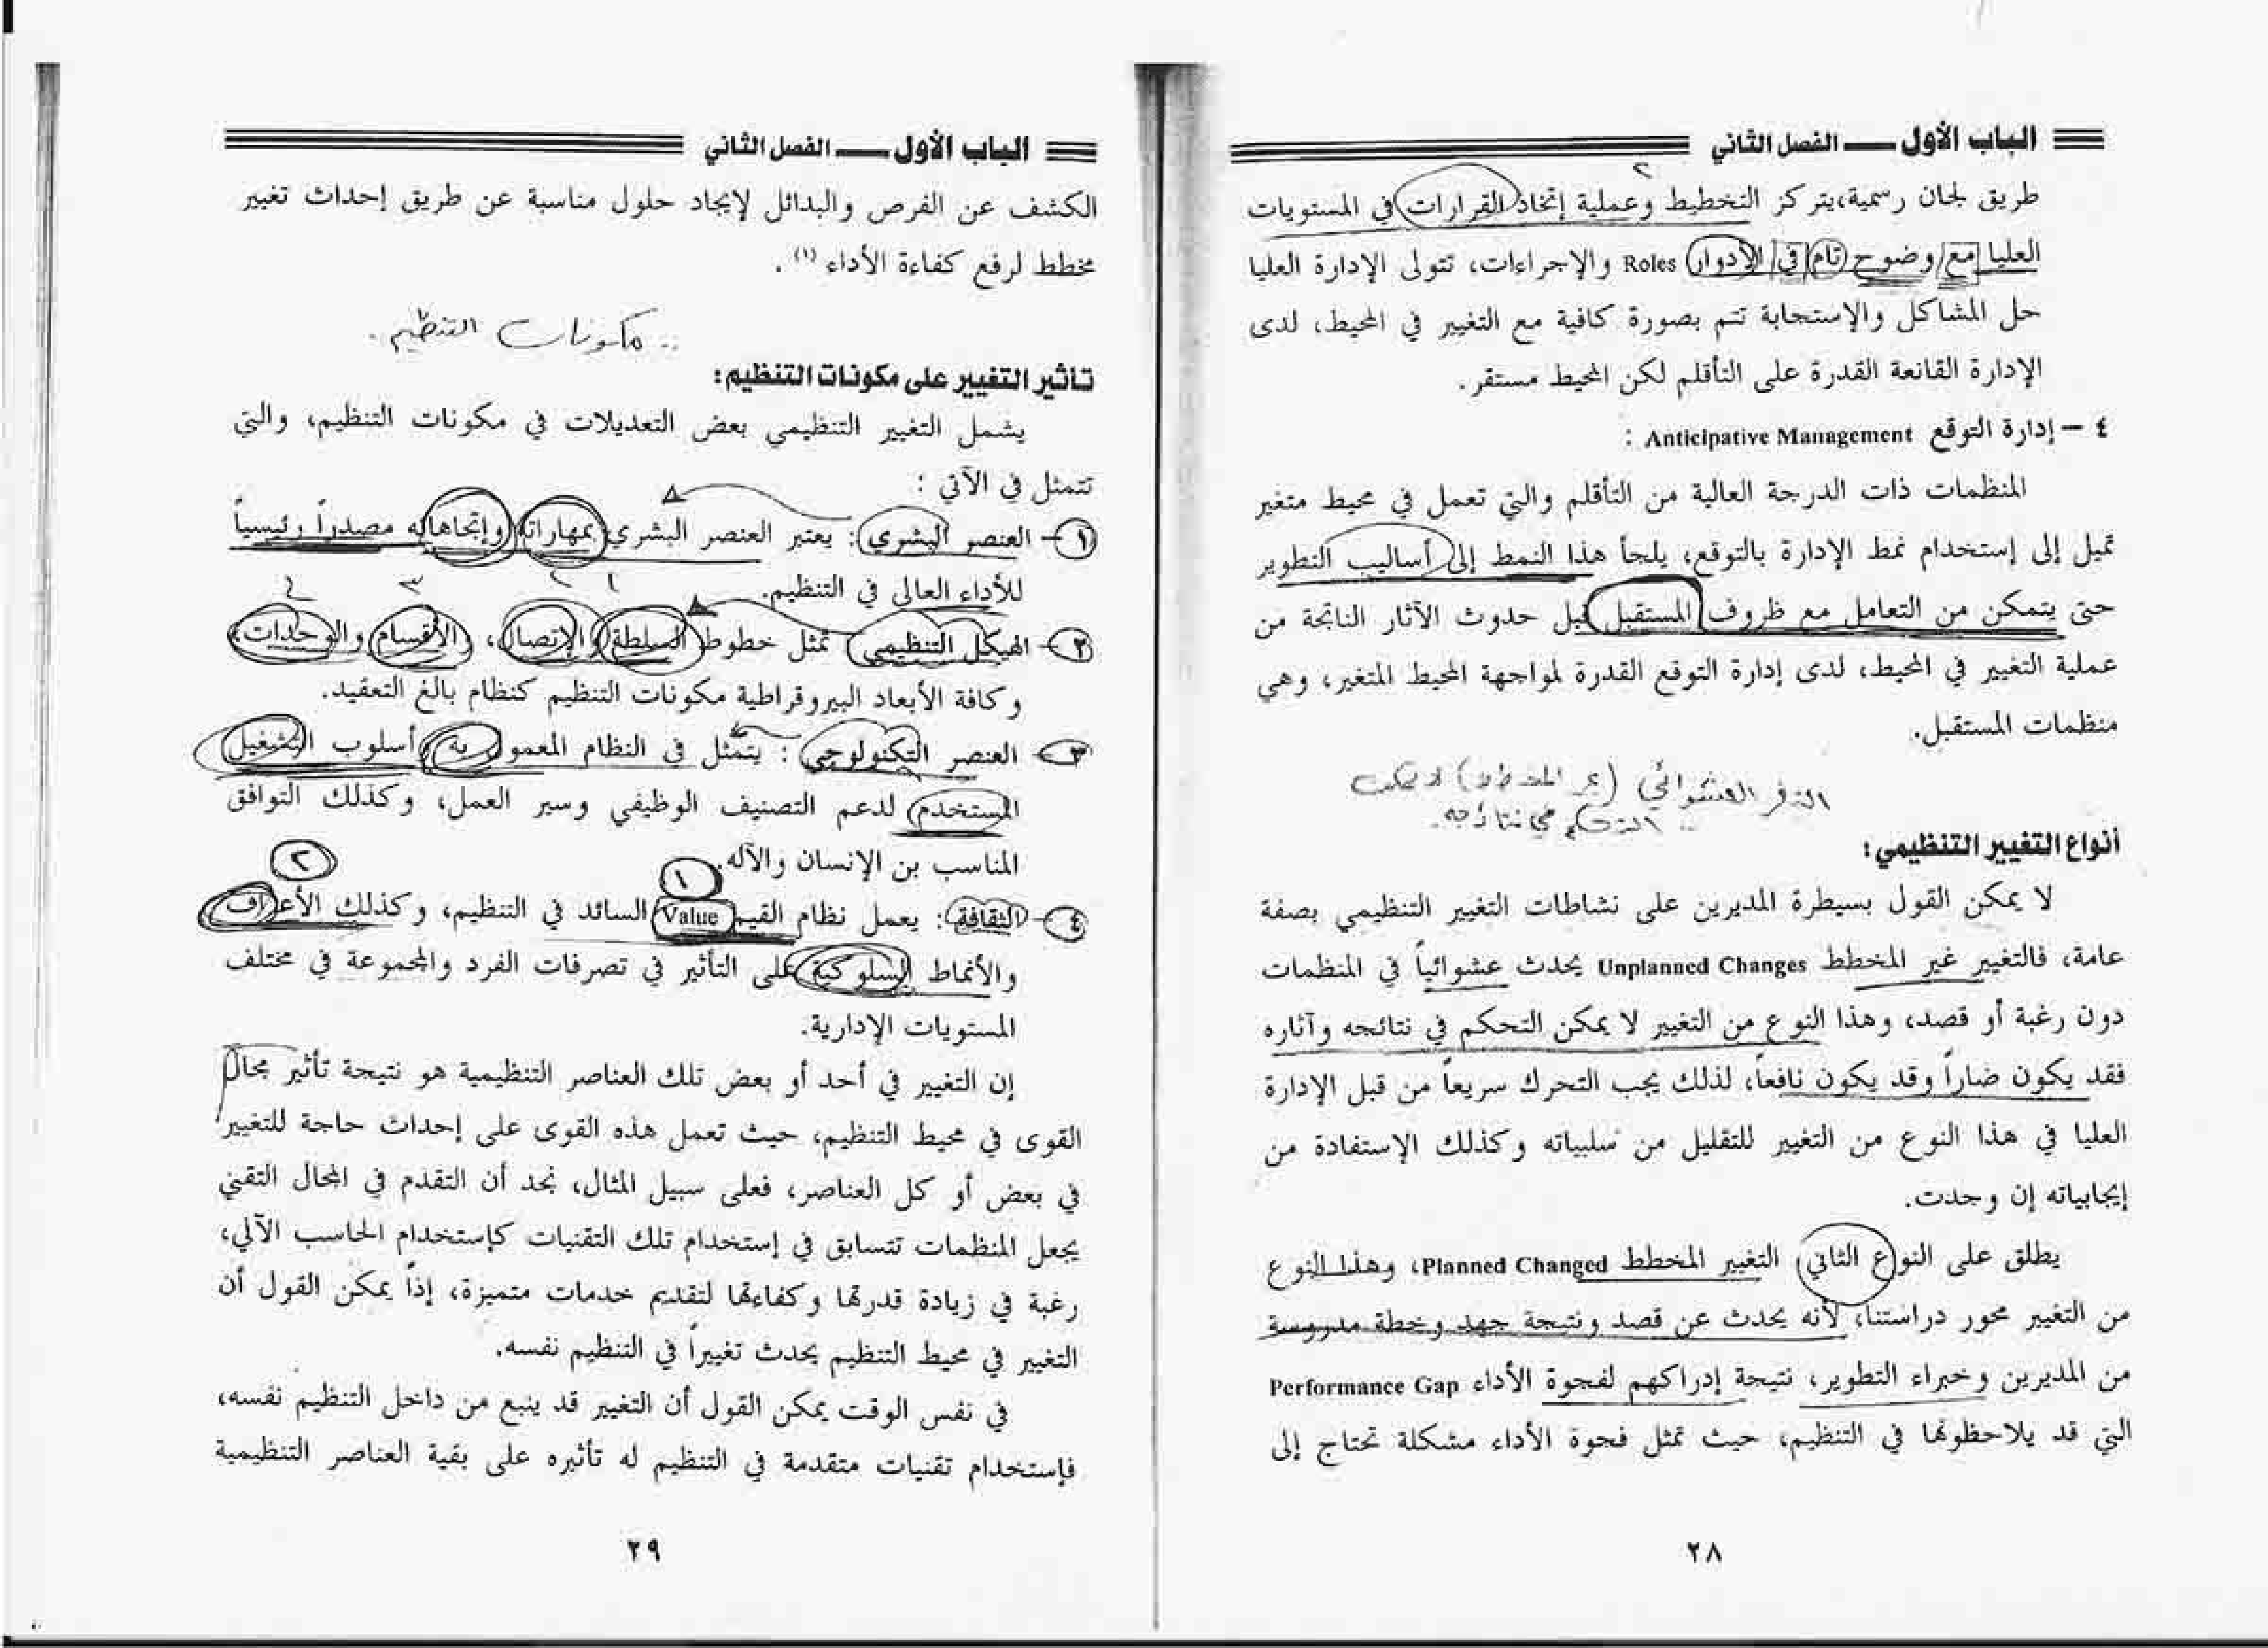 الباب الأول — الفصل الثاني
طريق لجان رسمية، يتركز التخطيط وعملية إتخاذ القرارات في المستويات
العليا مع وضوح تام في الأدوار Roles والإجراءات، تتولى الإدارة العليا
حل المشاكل والإستجابة تتم بصورة كافية مع التغيير في المحيط، لدى
الإدارة القانعة القدرة على التأقلم لكن المحيط مستقر.
٤ – إدارة التوقع Anticipative Management :
المنظمات ذات الدرجة العالية من التأقلم والتي تعمل في محيط متغير
تميل إلى إستخدام نمط الإدارة بالتوقع، يلجأ هذا النمط إلى أساليب التطوير
حتى يتمكن من التعامل مع ظروف المستقبل قبل حدوث الآثار الناتجة من
عملية التغيير في المحيط، لدى إدارة التوقع القدرة لمواجهة المحيط المتغير، وهي
منظمات المستقبل.
العشوائي ( المخطط) لا يمكن
التحكم في نتائجه.
أنواع التغيير التنظيمي:
لا يمكن القول بسيطرة المديرين على نشاطات التغيير التنظيمي بصفة
عامة، فالتغيير غير المخطط Unplanned Changes يحدث عشوائياً في المنظمات
دون رغبة أو قصد، وهذا النوع من التغيير لا يمكن التحكم في نتائجه وآثاره
فقد يكون ضاراً وقد يكون نافعاً، لذلك يجب التحرك سريعاً من قبل الإدارة
العليا في هذا النوع من التغيير للتقليل من سلبياته وكذلك الإستفادة من
إيجابياته إن وجدت.
يطلق على النوع الثاني التغيير المخطط Planned Changed، وهذا النوع
من التغيير محور دراستنا، لأنه يحدث عن قصد ونتيجة جهد وخطة مدروسة
من المديرين وخبراء التطوير، نتيجة إدراكهم لفجوة الأداء Performance Gap
التي قد يلاحظونها في التنظيم، حيث تمثل فجوة الأداء مشكلة تحتاج إلى
٢٨
الباب الأول — الفصل الثاني
الكشف عن الفرص والبدائل لإيجاد حلول مناسبة عن طريق إحداث تغيير
مخطط لرفع كفاءة الأداء (١) .
مكونات التنظيم.
تأثير التغيير على مكونات التنظيم:
يشمل التغيير التنظيمي بعض التعديلات في مكونات التنظيم، والتي
تتمثل في الآتي :
١– العنصر البشري: يعتبر العنصر البشري بمهاراته وإتجاهاته مصدراً رئيسياً
للأداء العالي في التنظيم.
١ ٢ ٣ ٤
٢– الهيكل التنظيمي تمثل خطوط السلطة والإتصال، والأقسام والوحدات،
وكافة الأبعاد البيروقراطية مكونات التنظيم كنظام بالغ التعقيد.
٣– العنصر التكنولوجي : يتمثل في النظام المعمول به وأسلوب التشغيل
المستخدم لدعم التصنيف الوظيفي وسير العمل، وكذلك التوافق
المناسب بن الإنسان والآله.
١ ٢
٤– الثقافة: يعمل نظام القيم Value السائد في التنظيم، وكذلك الأعراف
والأنماط السلوكية على التأثير في تصرفات الفرد والمجموعة في مختلف
المستويات الإدارية.
إن التغيير في أحد أو بعض تلك العناصر التنظيمية هو نتيجة تأثير مجال
القوى في محيط التنظيم، حيث تعمل هذه القوى على إحداث حاجة للتغيير
في بعض أو كل العناصر، فعلى سبيل المثال، نجد أن التقدم في المجال التقني
يجعل المنظمات تتسابق في إستخدام تلك التقنيات كإستخدام الحاسب الآلي،
رغبة في زيادة قدرتها وكفاءتها لتقديم خدمات متميزة، إذاً يمكن القول أن
التغيير في محيط التنظيم يحدث تغييراً في التنظيم نفسه.
في نفس الوقت يمكن القول أن التغيير قد ينبع من داخل التنظيم نفسه،
فإستخدام تقنيات متقدمة في التنظيم له تأثيره على بقية العناصر التنظيمية
٢٩